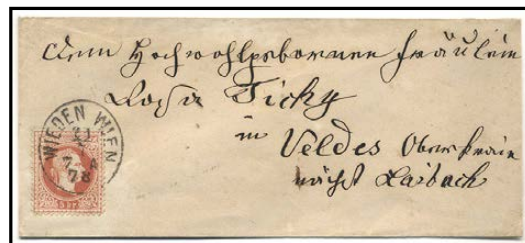 Dem Hochwohlgebornen Fräulein
Rosa Ticky
in
Veldes Oberkrain
nächst Laibach
WIEDEN WIEN
78
5 kr